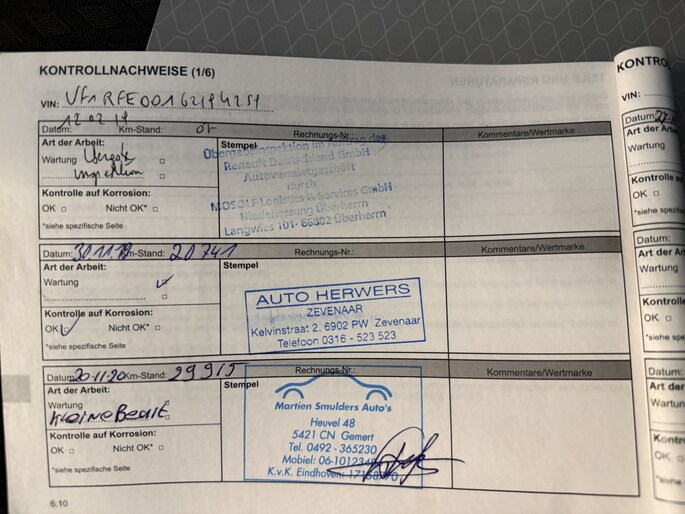 KONTROLLNACHWEISE (1/6)
VIN:
12 02 19
Datum: Km-Stand: 07 Rechnungs-Nr.: Kommentare/Wertmarke
Art der Arbeit:
Wartung
Inspektion
Kontrolle auf Korrosion:
OK □ Nicht OK* □
*siehe spezifische Seite
Stempel
Übergabeinspektion im Auftrag der
Renault Deutschland GmbH
Autovermietgeschäft
durch
MOSOLF Logistics & Services GmbH
Niederlassung Überherrn
Langwies 101· 66802 Überherrn
Datum: 30.11.19 Km-Stand: 20741 Rechnungs-Nr.: Kommentare/Wertmarke
Art der Arbeit:
Wartung
Kontrolle auf Korrosion:
OK Nicht OK* □
*siehe spezifische Seite
Stempel
AUTO HERWERS
ZEVENAAR
Kelvinstraat 2, 6902 PW Zevenaar
Telefoon 0316 - 523 523
Datum: 20-11-20 Km-Stand: 29915 Rechnungs-Nr.: Kommentare/Wertmarke
Art der Arbeit:
Wartung
Kleine Beurt
Kontrolle auf Korrosion:
OK □ Nicht OK* □
*siehe spezifische Seite
Stempel
Martien Smulders Auto's
Heuvel 48
5421 CN Gemert
Tel. 0492 - 365230
Mobiel: 06-1012
K.v.K. Eindhoven:
6.10
KONTRO
VIN:
Datum:
Art der Ar
Wartung
Kontrolle au
OK □
*siehe spezifi
Datum:
Art der Ar
Wartung
Kontrolle
OK □
*siehe spezif
Datum:
Art der
Wartun
Kontro
OK
*siehe